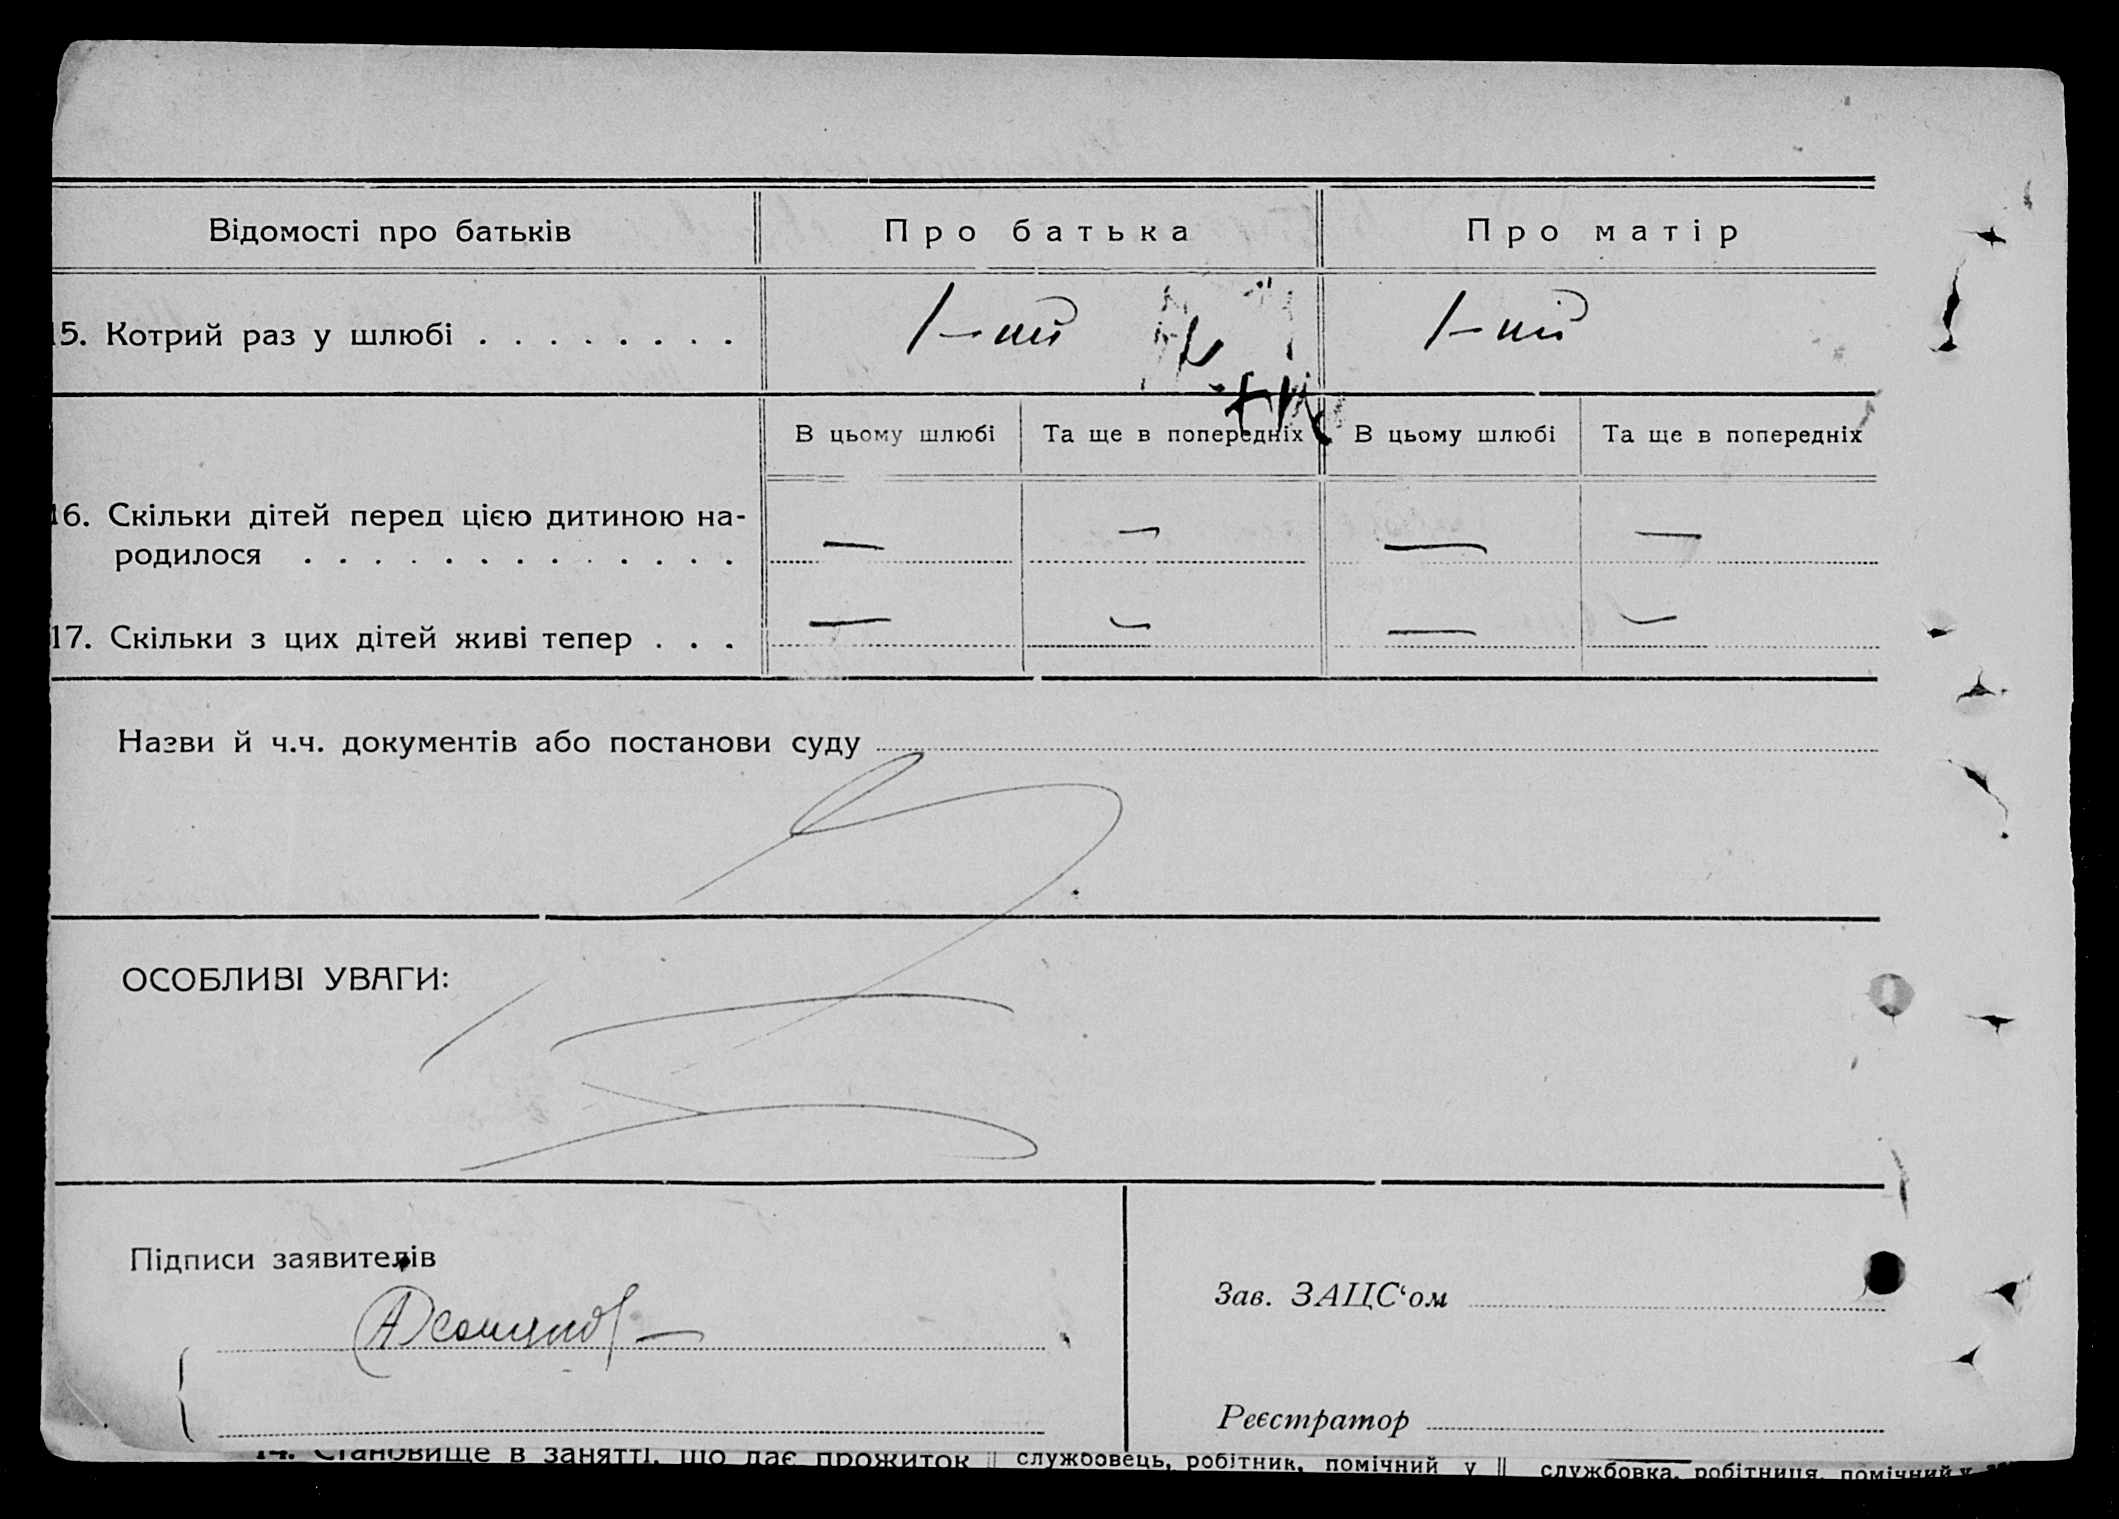 Відомості про батьків Про батька Про матір
15. Котрий раз у шлюбі . . . . . . . . 1-ий 1-ий
В цьому шлюбі Та ще в попередніх В цьому шлюбі Та ще в попередніх
16. Скільки дітей перед цією дитиною на-
родилося . . . . . . . . . . . . . — — — —
17. Скільки з цих дітей живі тепер . . . — — — —
Назви й ч.ч. документів або постанови суду
ОСОБЛИВІ УВАГИ:
Підписи заявителів
Зав. ЗАЦС‘ом
Реєстратор
14. Становище в занятті, що дає прожиток службовець, робітник, помічний у службовка, робітниця, помічний у